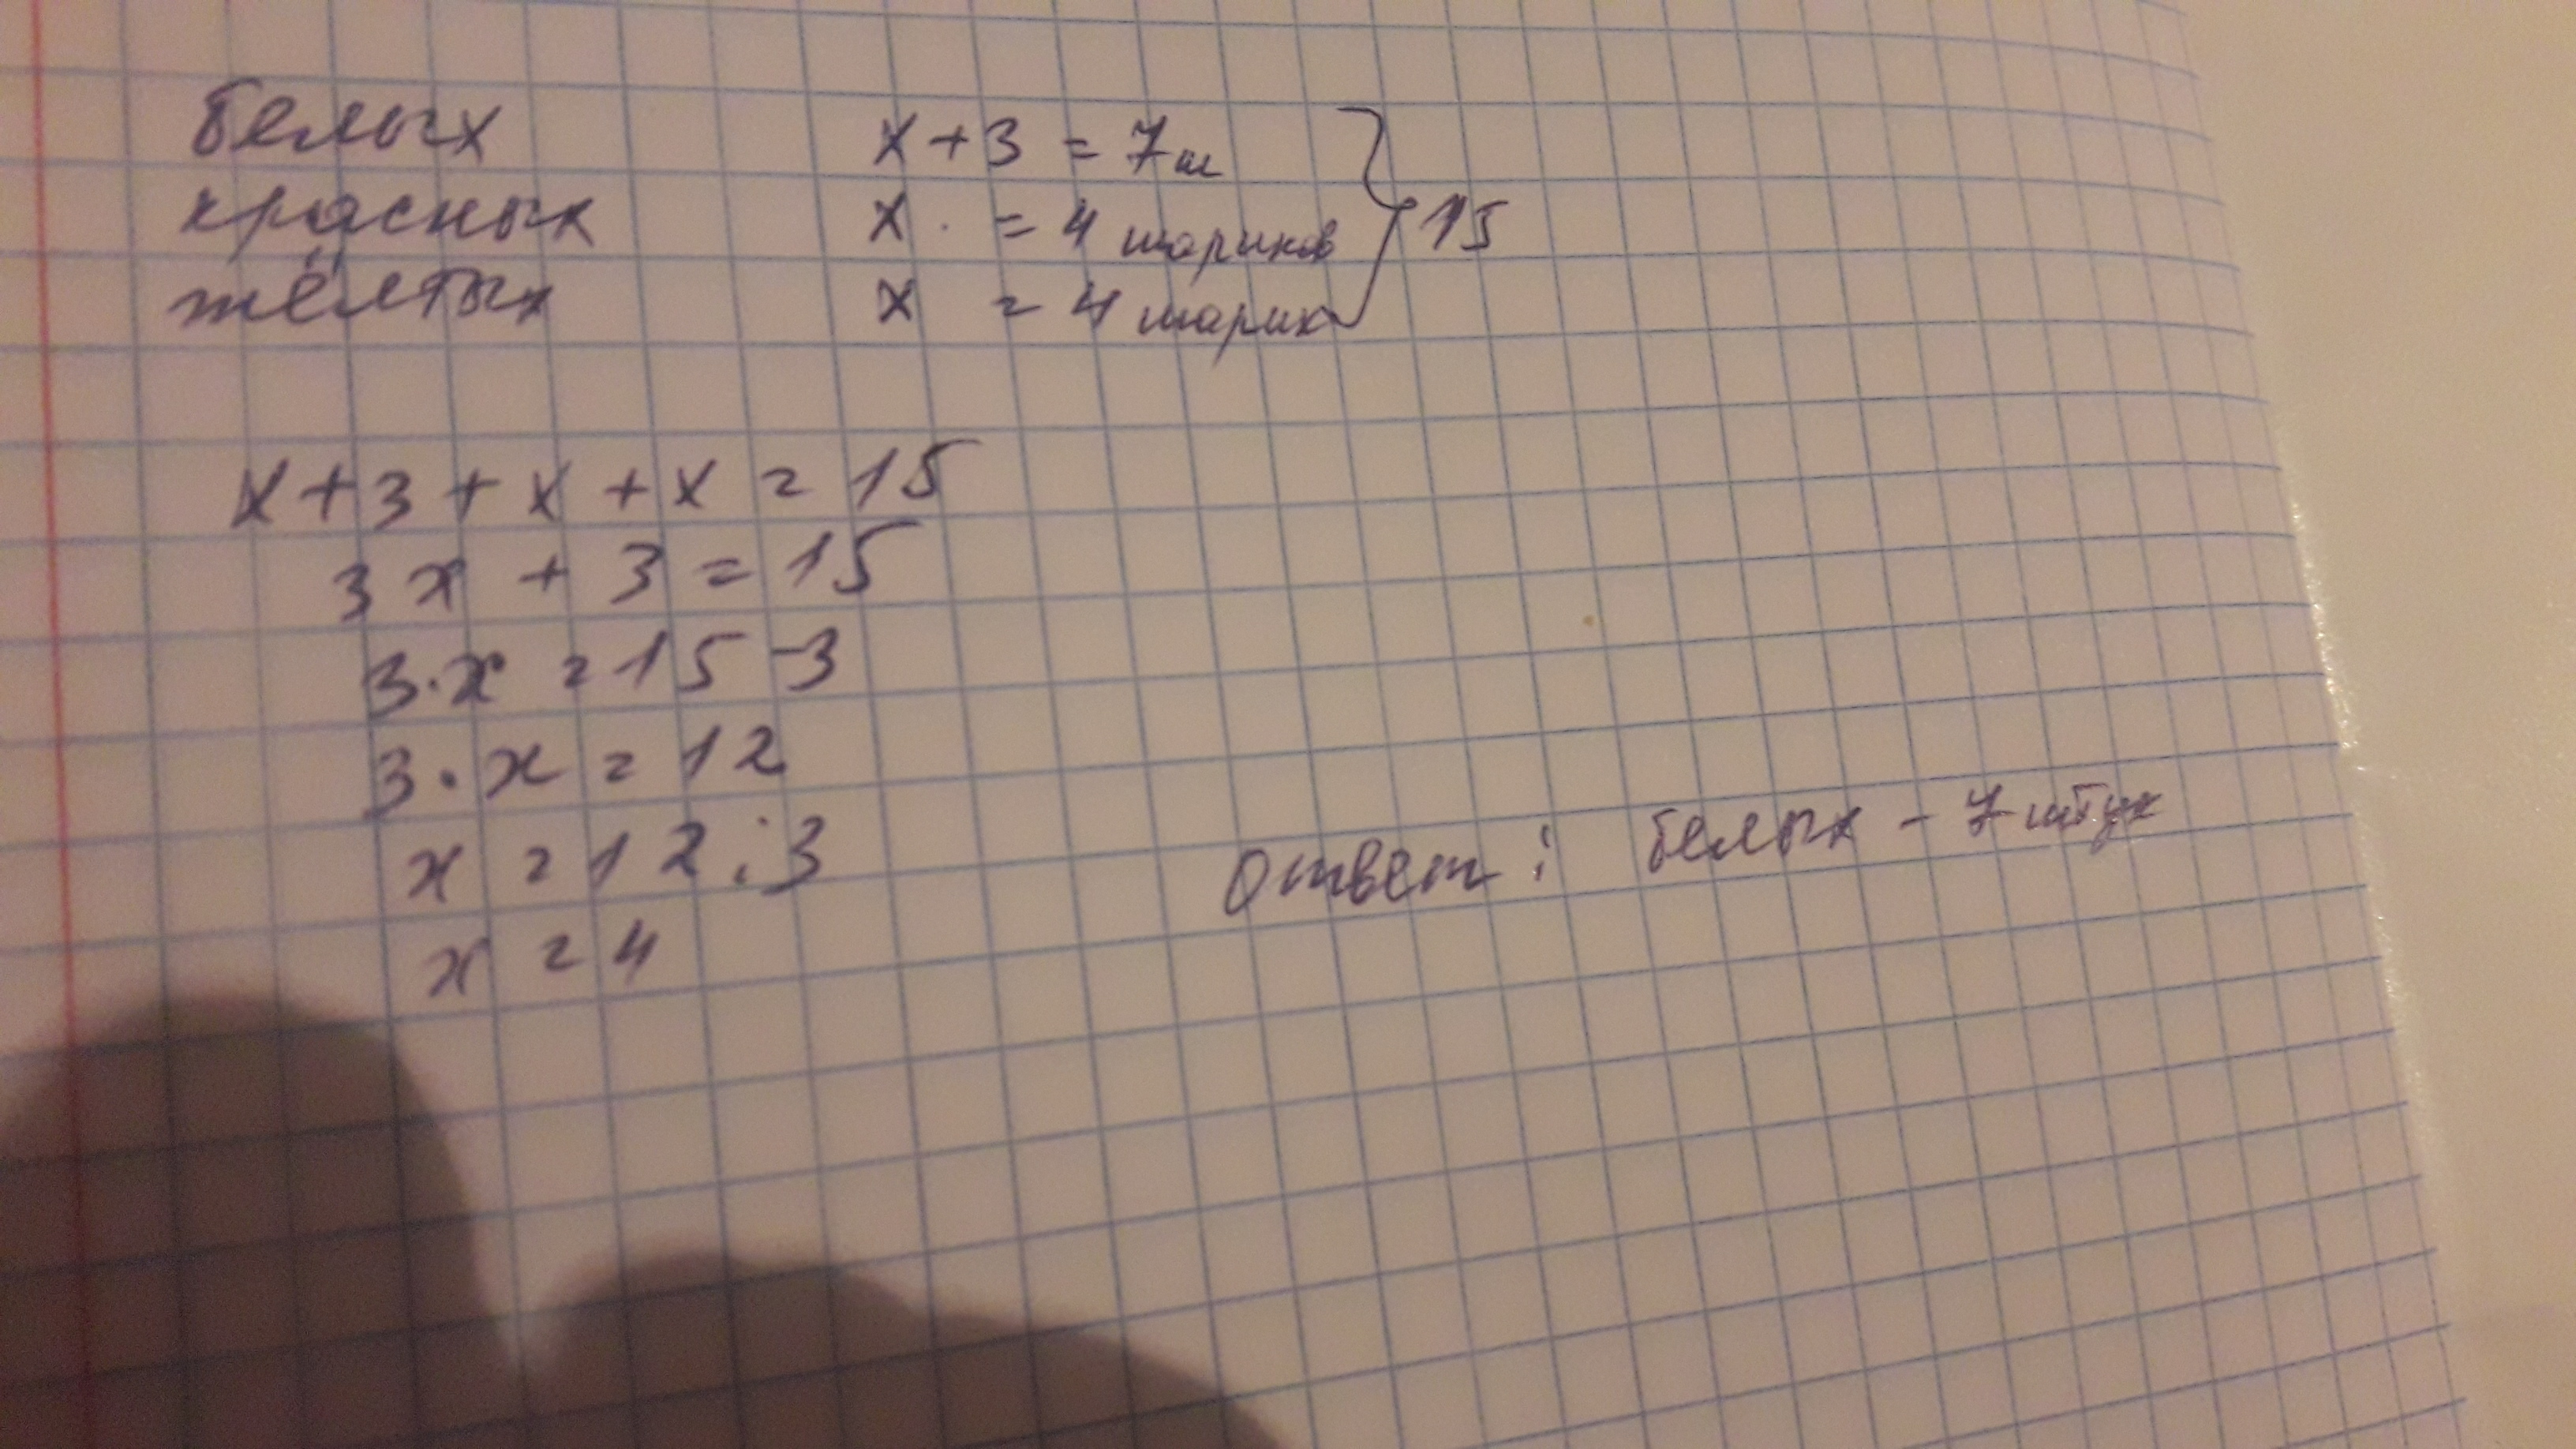 белых x + 3 = 7 ш
красных x = 4 шариков } 15
жёлтых x = 4 шарик
x + 3 + x + x = 15
3x + 3 = 15
3·x = 15 - 3
3·x = 12
x = 12 : 3
x = 4
Ответ: белых - 7 штук